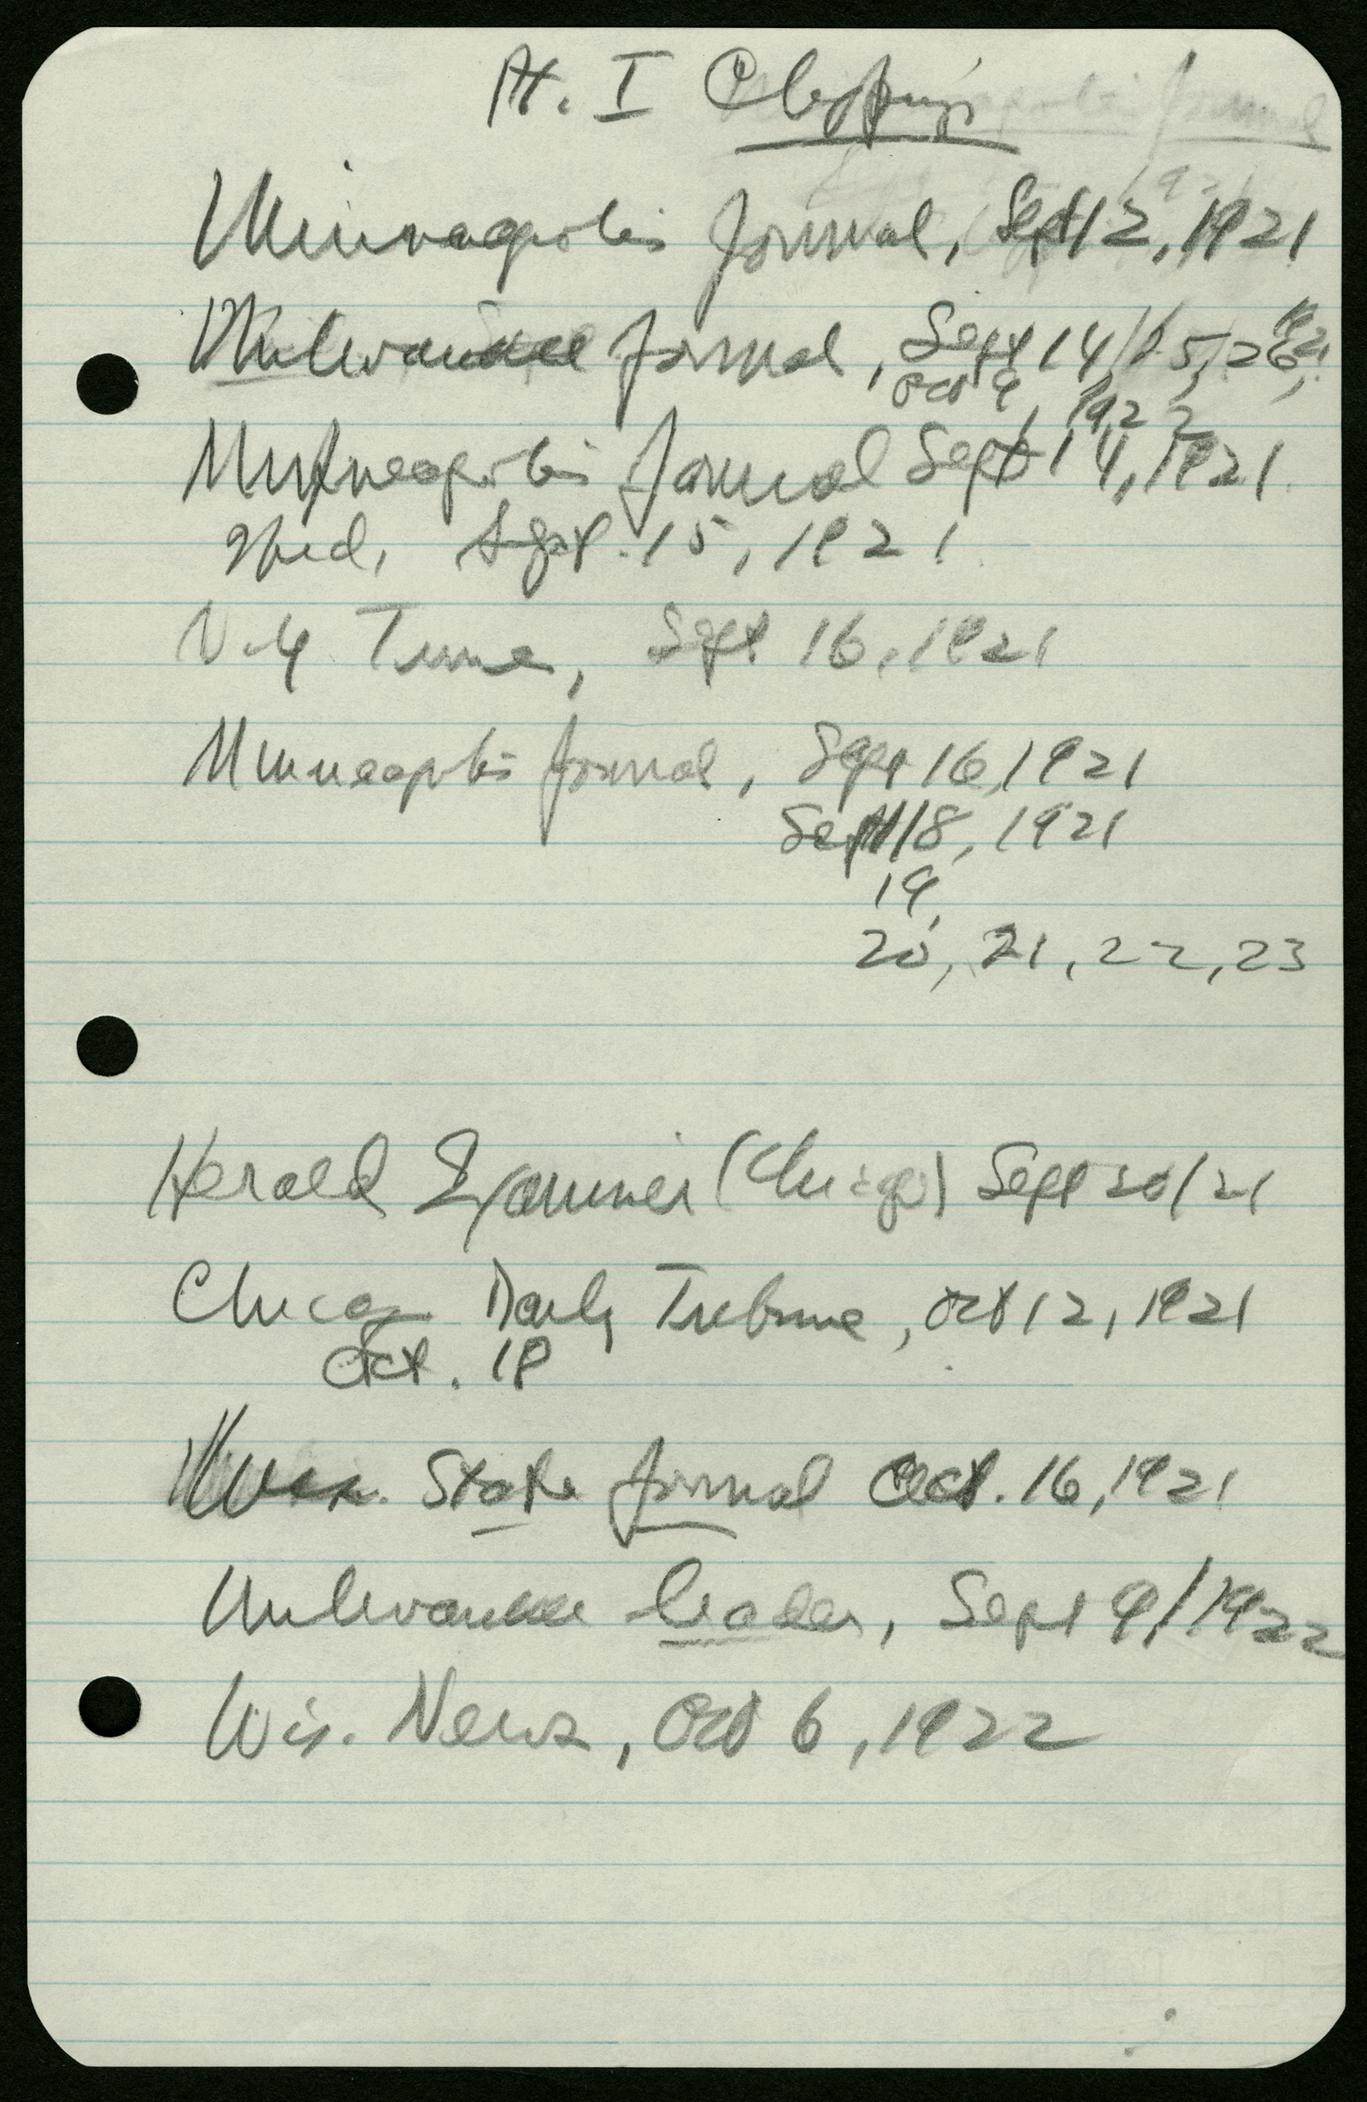 Pt. I Clippings
Minneapolis Journal, Sept 12, 1921
Milwaukee Journal, Sept 14/15, 26, 1921
Oct 9, 1922
Minneapolis Journal Sept 14, 1921
Ibid, Sept. 15, 1921
N.Y Times, Sept 16, 1921
Minneapolis Journal, Sept 16, 1921
Sept 18, 1921
19,
20, 21, 22, 23
Herald Examiner (Chicago) Sept 20/21
Chicago Daily Tribune, Oct 12, 1921
Oct. 18
Wis. State Journal Oct. 16, 1921
Milwaukee Leader, Sept 9/1922
Wis. News, Oct 6, 1922